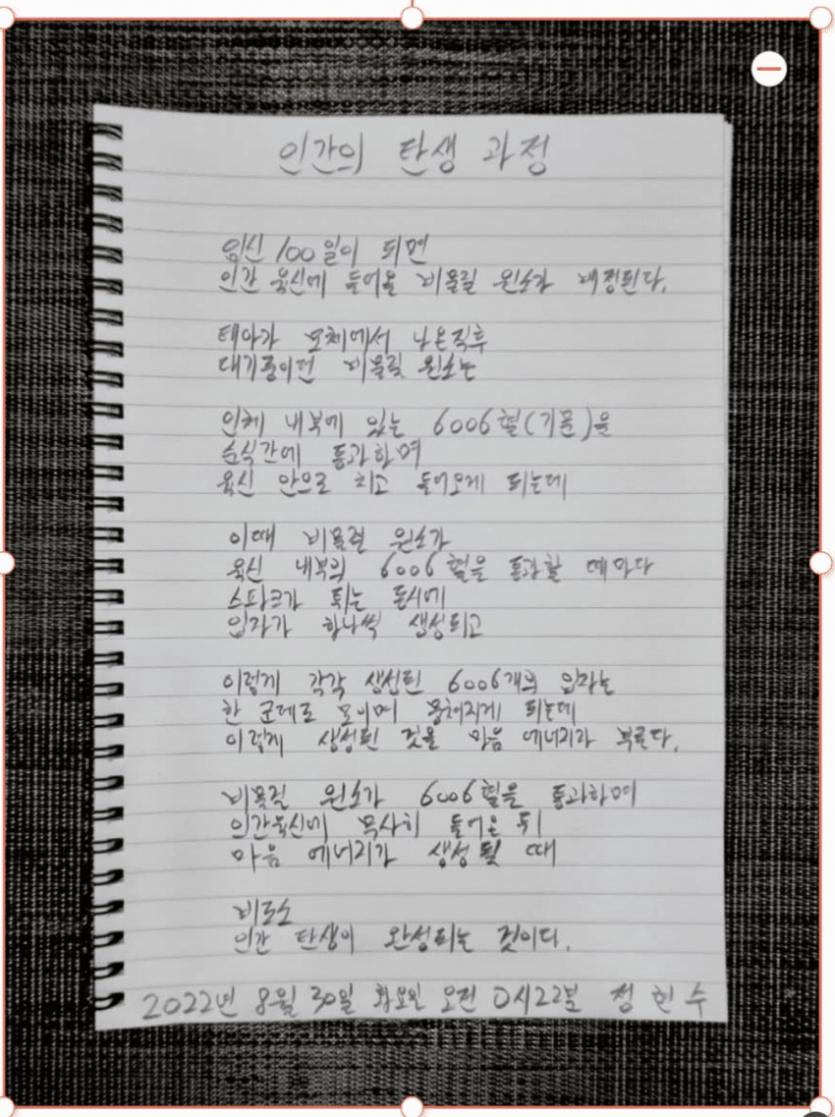 인간의 탄생 과정
임신 100일이 되면
인간 육신에 들어올 비물질 원소가 배정된다.
태아가 모체에서 나온직후
대기중이던 비물질 원소는
인체 내부에 있는 6006혈(기준)을
순식간에 통과하며
육신 안으로 치고 들어오게 되는데
이때 비물질 원소가
육신 내부의 6006혈을 통과할 때마다
스파크가 튀는 동시에
입자가 하나씩 생성되고
이렇게 각각 생성된 6006개의 입자는
한 군데로 모이며 뭉쳐지게 되는데
이렇게 생성된 것을 마음 에너지라 부른다.
비물질 원소가 6006혈을 통과하며
인간육신에 무사히 들어온 뒤
마음 에너지가 생성될 때
비로소
인간 탄생이 완성되는 것이다.
2022년 8월 30일 화요일 오전 0시22분 정현수